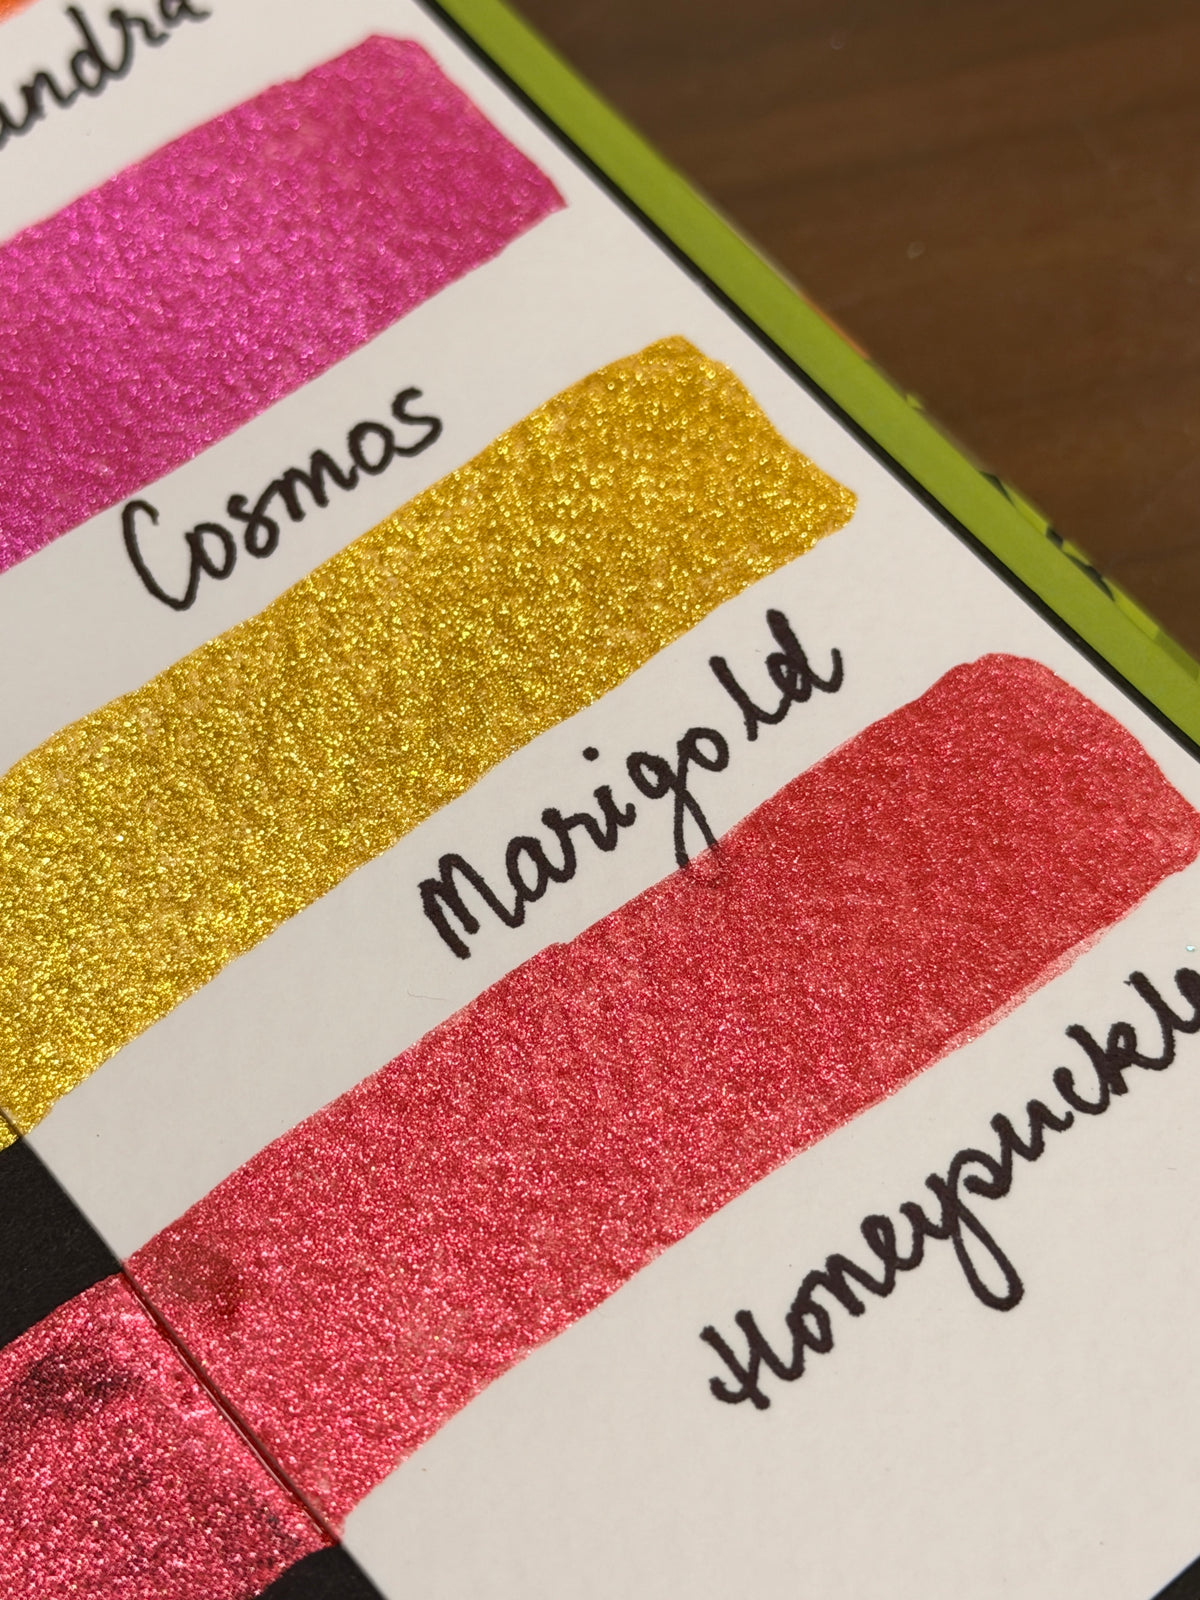 andra
Cosmos
Marigold
Honeypuckle